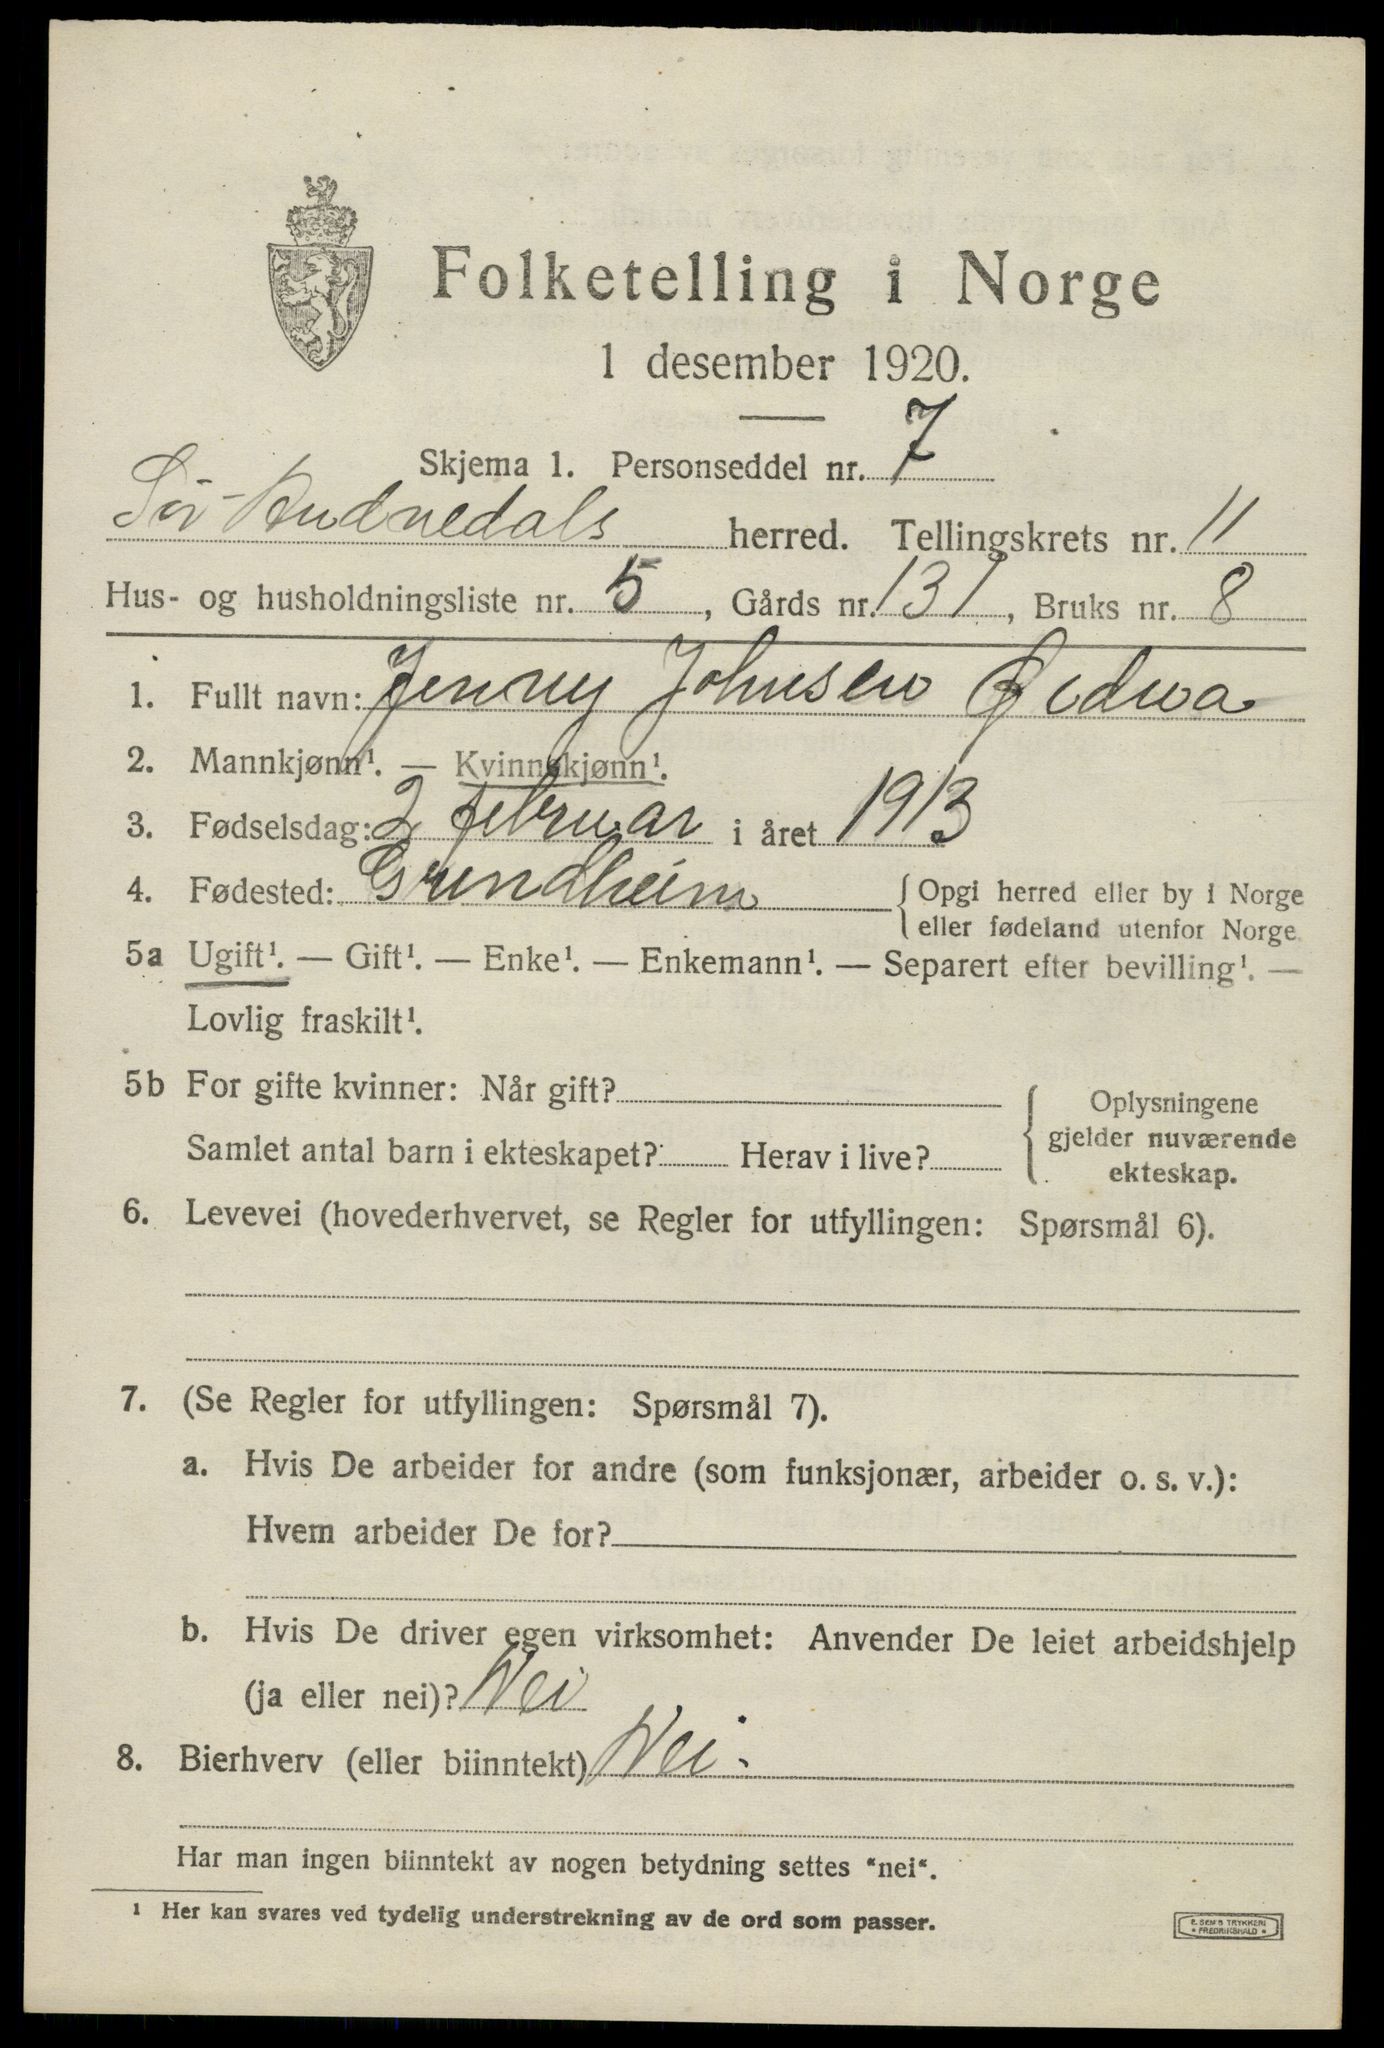 Folketelling i Norge
1 desember 1920.
Skjema 1. Personseddel nr. 7
Sør-Audnedals herred. Tellingskrets nr. 11
Hus- og husholdningsliste nr. 5, Gårds nr. 131, Bruks nr. 8
1. Fullt navn: Jenny Johnsen Ødna
2. Mannkjønn¹. — Kvinnekjønn¹.
3. Fødselsdag: 2 februar i året 1913
4. Fødested: Grindheim { Opgi herred eller by i Norge
eller fødeland utenfor Norge.
5a Ugift¹. — Gift¹. — Enke¹. — Enkemann¹. — Separert efter bevilling¹. —
Lovlig fraskilt¹.
5b For gifte kvinner: Når gift?
Samlet antal barn i ekteskapet? Herav i live?
{ Oplysningene
gjelder nuværende
ekteskap.
6. Levevei (hovederhvervet, se Regler for utfyllingen: Spørsmål 6).
7. (Se Regler for utfyllingen: Spørsmål 7).
a. Hvis De arbeider for andre (som funksjonær, arbeider o. s. v.):
Hvem arbeider De for?
b. Hvis De driver egen virksomhet: Anvender De leiet arbeidshjelp
(ja eller nei)? Nei
8. Bierhverv (eller biinntekt) Nei.
Har man ingen biinntekt av nogen betydning settes "nei".
¹ Her kan svares ved tydelig understrekning av de ord som passer.
E. SEM'S TRYKKERI
* FREDRIKSHALD *